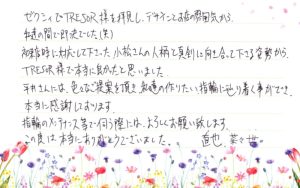 ゼクシィでTRESOR様を拝見し、デザインとお店の雰囲気から、
私達の間で即決でした(笑)
初来店時に対応して下さった小松さんの人柄と真剣に向き合って下さる姿勢から、
TRESOR様で本当に良かったと思いました。
平井さんには、色々なご提案を頂き、私達の作りたい指輪に辿り着く事ができ、
本当に感謝しております。
指輪のメンテナンス等で伺う際には、よろしくお願い致します。
この度は本当にありがとうございました。
直也 菜々世